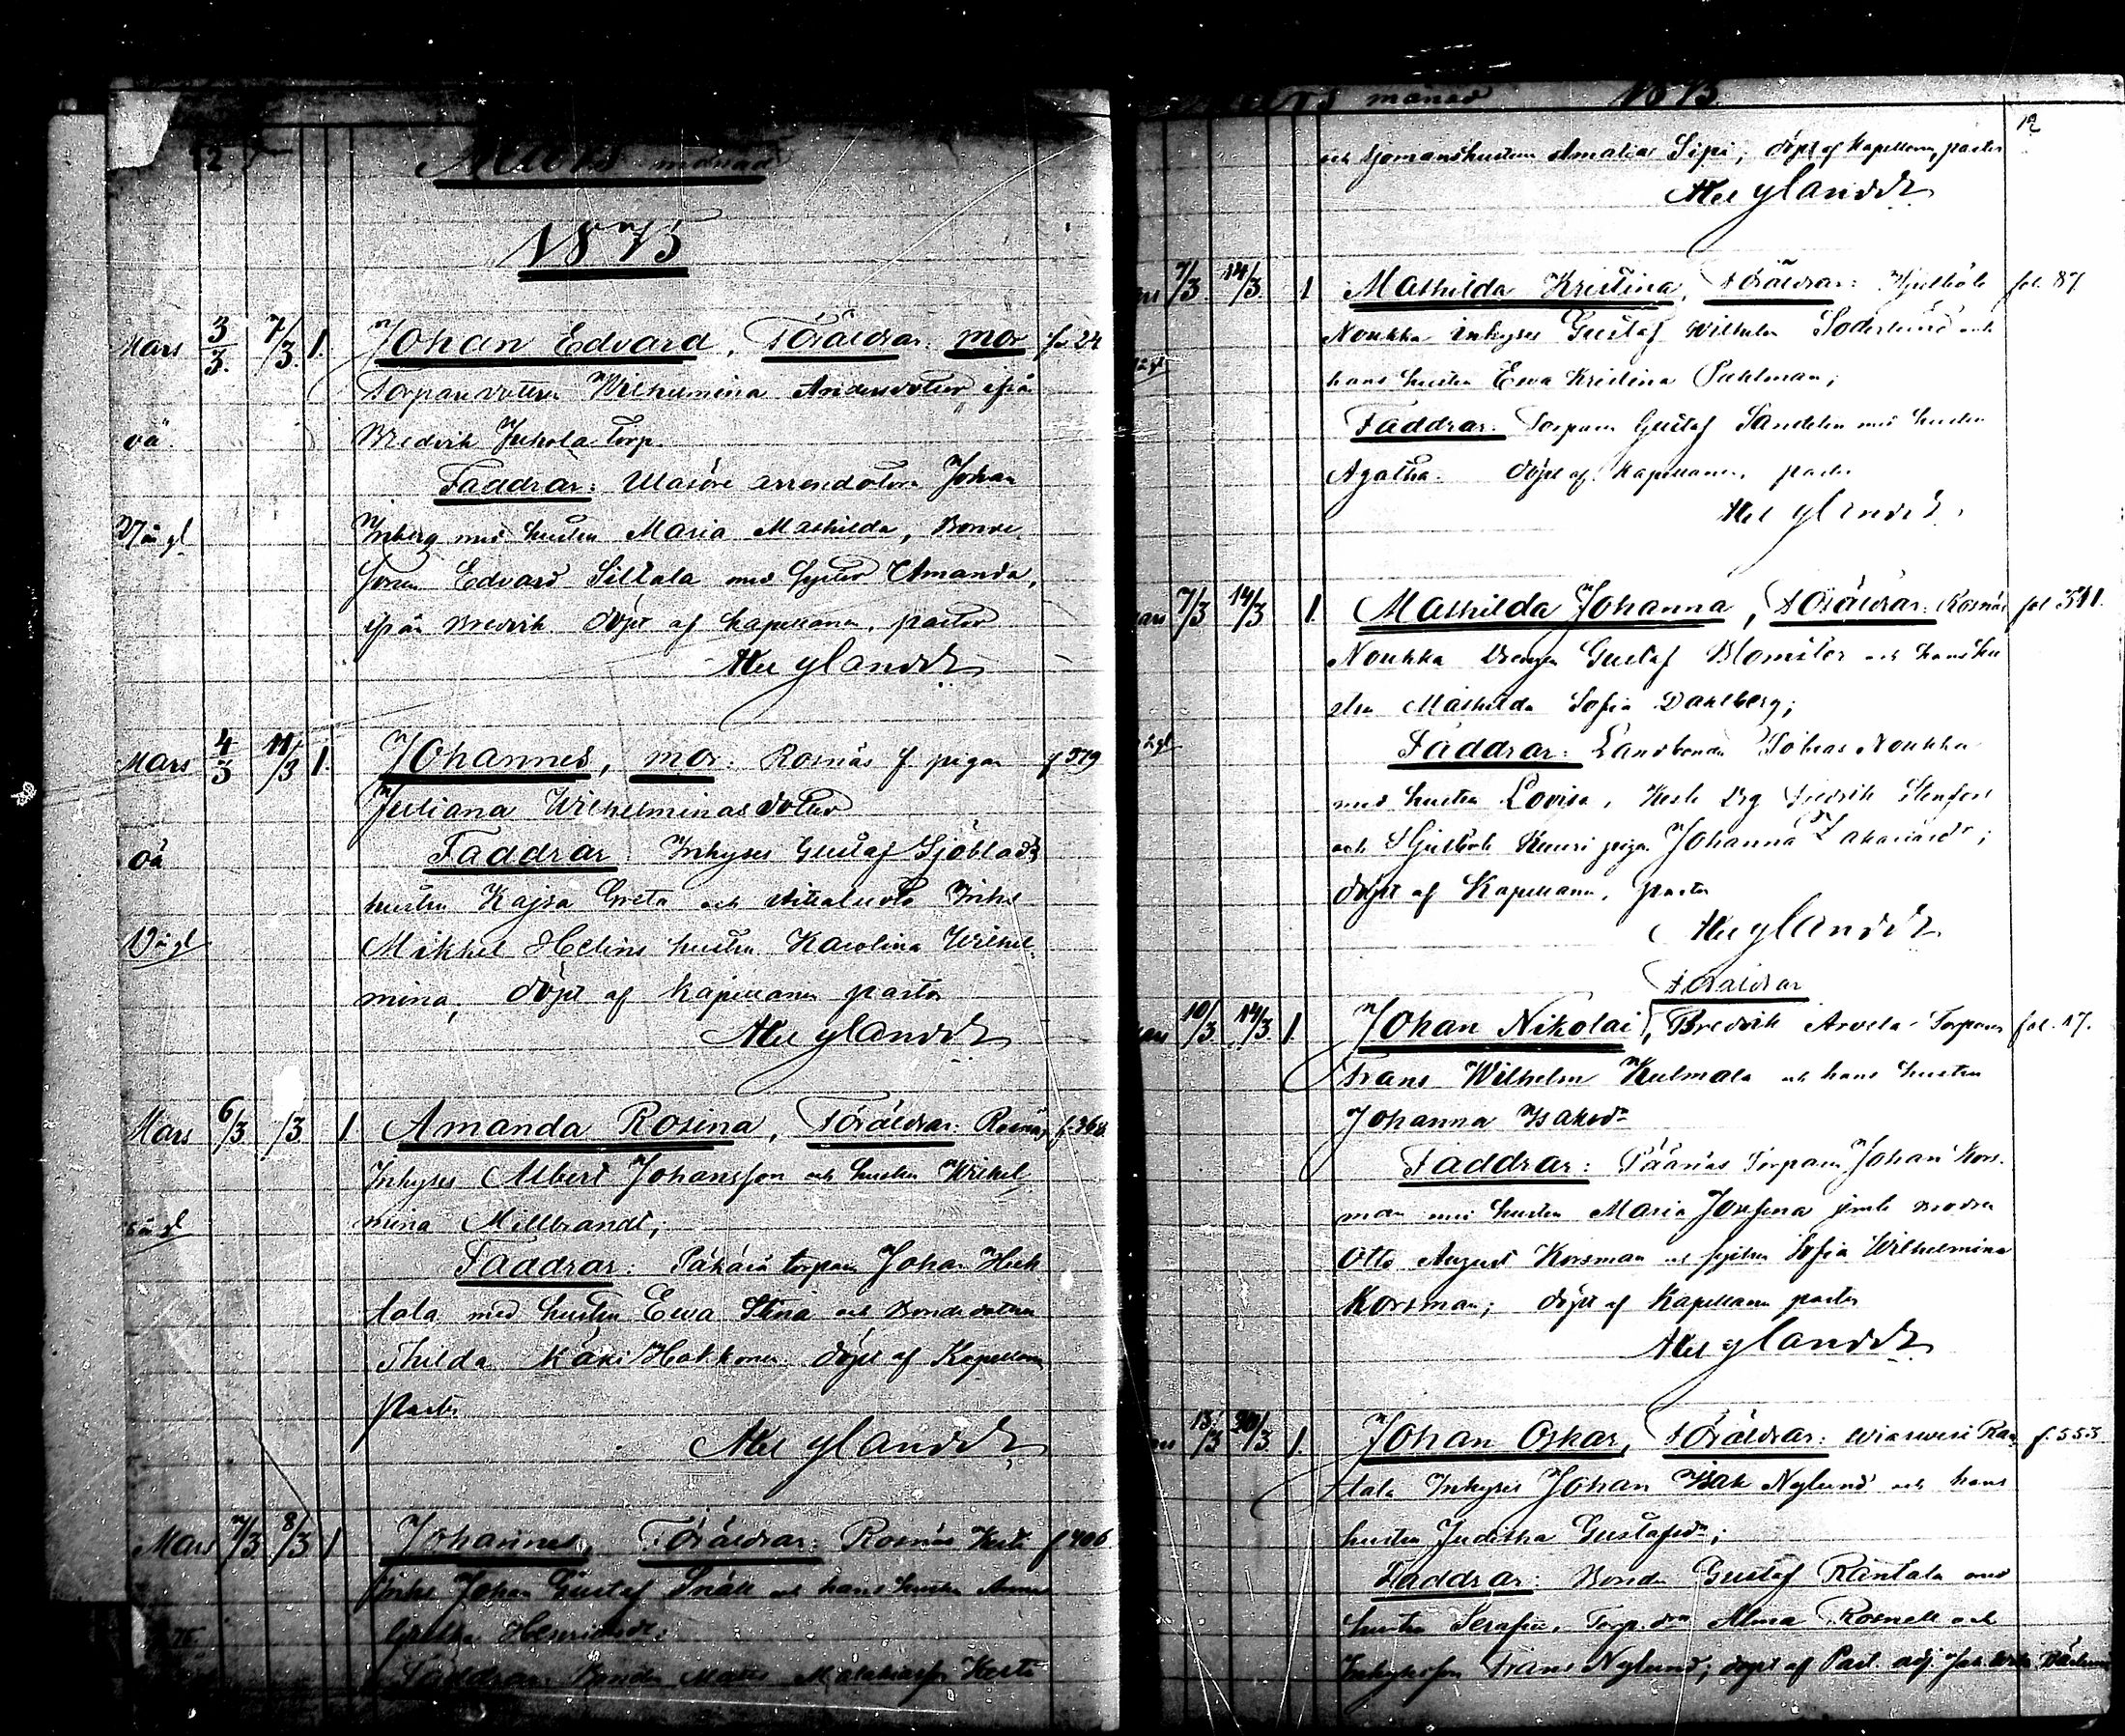 12
Mars månad
1875
Mars 3/3. 7/3. 1. Johan Edvard, Föräldrar: mor fol 24
Torparedottren Wilhelmina Andersdotter ifrån
oä. Bredvik Jukola torp.
Faddrar: Ulasöre arrendatorn Johan
27 år gl Inberg med hustru Maria Mathilda, Bonde
sonen Edvard Siltala med syster Amanda,
ifrån Bredvik. döpt af kapellanen, pastor
Mars 4/3 11/3 1. Johannes, mor: Rosnäs f. pigan f 379
Juliana Wilhelminasdotter
oä Faddrar: Inhyses Gustaf Sjöblads
hustru Kajsa Greta och Inhs
19 år gl Mikkel Helins hustru Karolina Wilhel
mina, döpt af kapellanen pastor
Mars 6/3 /3 1 Amanda Rosina, Föräldrar: Rosnäs f. 368.
Inhyses Albert Johansson och hustru Wilhel
mina Millbrandt;
Faddrar: torparen Johan Heik
kala med hustru Ewa Stina och Bonde dottren
Thilda Mäki Hakkonen döpt af Kapellanen
pastor
Mars 7/3 8/3 1 Johannes, Föräldrar: Rosnäs Kesti f 406
Inhs Johan Gustaf Snäll och hans hustru Anna
Greta
Faddrar: Bonden Matts Kesti
Mars månad 1875. 12
och sjömanshustrun Amalia Sipi; döpt af kapellanen, pastor
7/3 14/3. 1 Mathilda Kristina, Föräldrar: Hjulböle fol. 87
Noukka inhyses Gustaf Wilhelm Söderlund och
hans hustru Ewa Kristina Pahlman;
Faddrar: Torparen Gustaf Sandelin med hustru
Agatha. döpt af Kapellanen, pastor
Mars 7/3 14/3 1. Mathilda Johanna, Föräldrar: Rosnäs fol 311.
Noukka drengen Gustaf Blomster och hans hu
stru Mathilda Sofia Dahlberg;
Faddrar: Landbonden Tobias Noukka
med hustru Lovisa, Kesti drg Fredrik Stenfors
och Hjulböle Kuuri piga Johanna Zakariasdr;
döpt af Kapellanen, pastor
Föräldrar
10/3 14/3. 1. Johan Nikolai, Bredvik Arvela Torparen fol. 17.
Frans Wilhelm Kulmala och hans hustru
Johanna Isaksdr
Faddrar: Päärnäs Torparen Johan Kors-
man med hustru Maria Josefina jemte brodren
Otto August Korsman och systren Sofia Wilhelmina
Korsman; döpt af Kapellanen pastor
13/3 20/3. 1. Johan Oskar, Föräldrar: Wiasvesi Ran f. 553
tala Inhyses Johan Isak Nylund och hans
hustru Juditha Gustafsdr;
Faddrar: Bonden Gustaf Rantala med
hustru Serafia, Torp. drn Alma Rosnell och
Inhysessonen Frans Nylund; döpt af Past. adj.